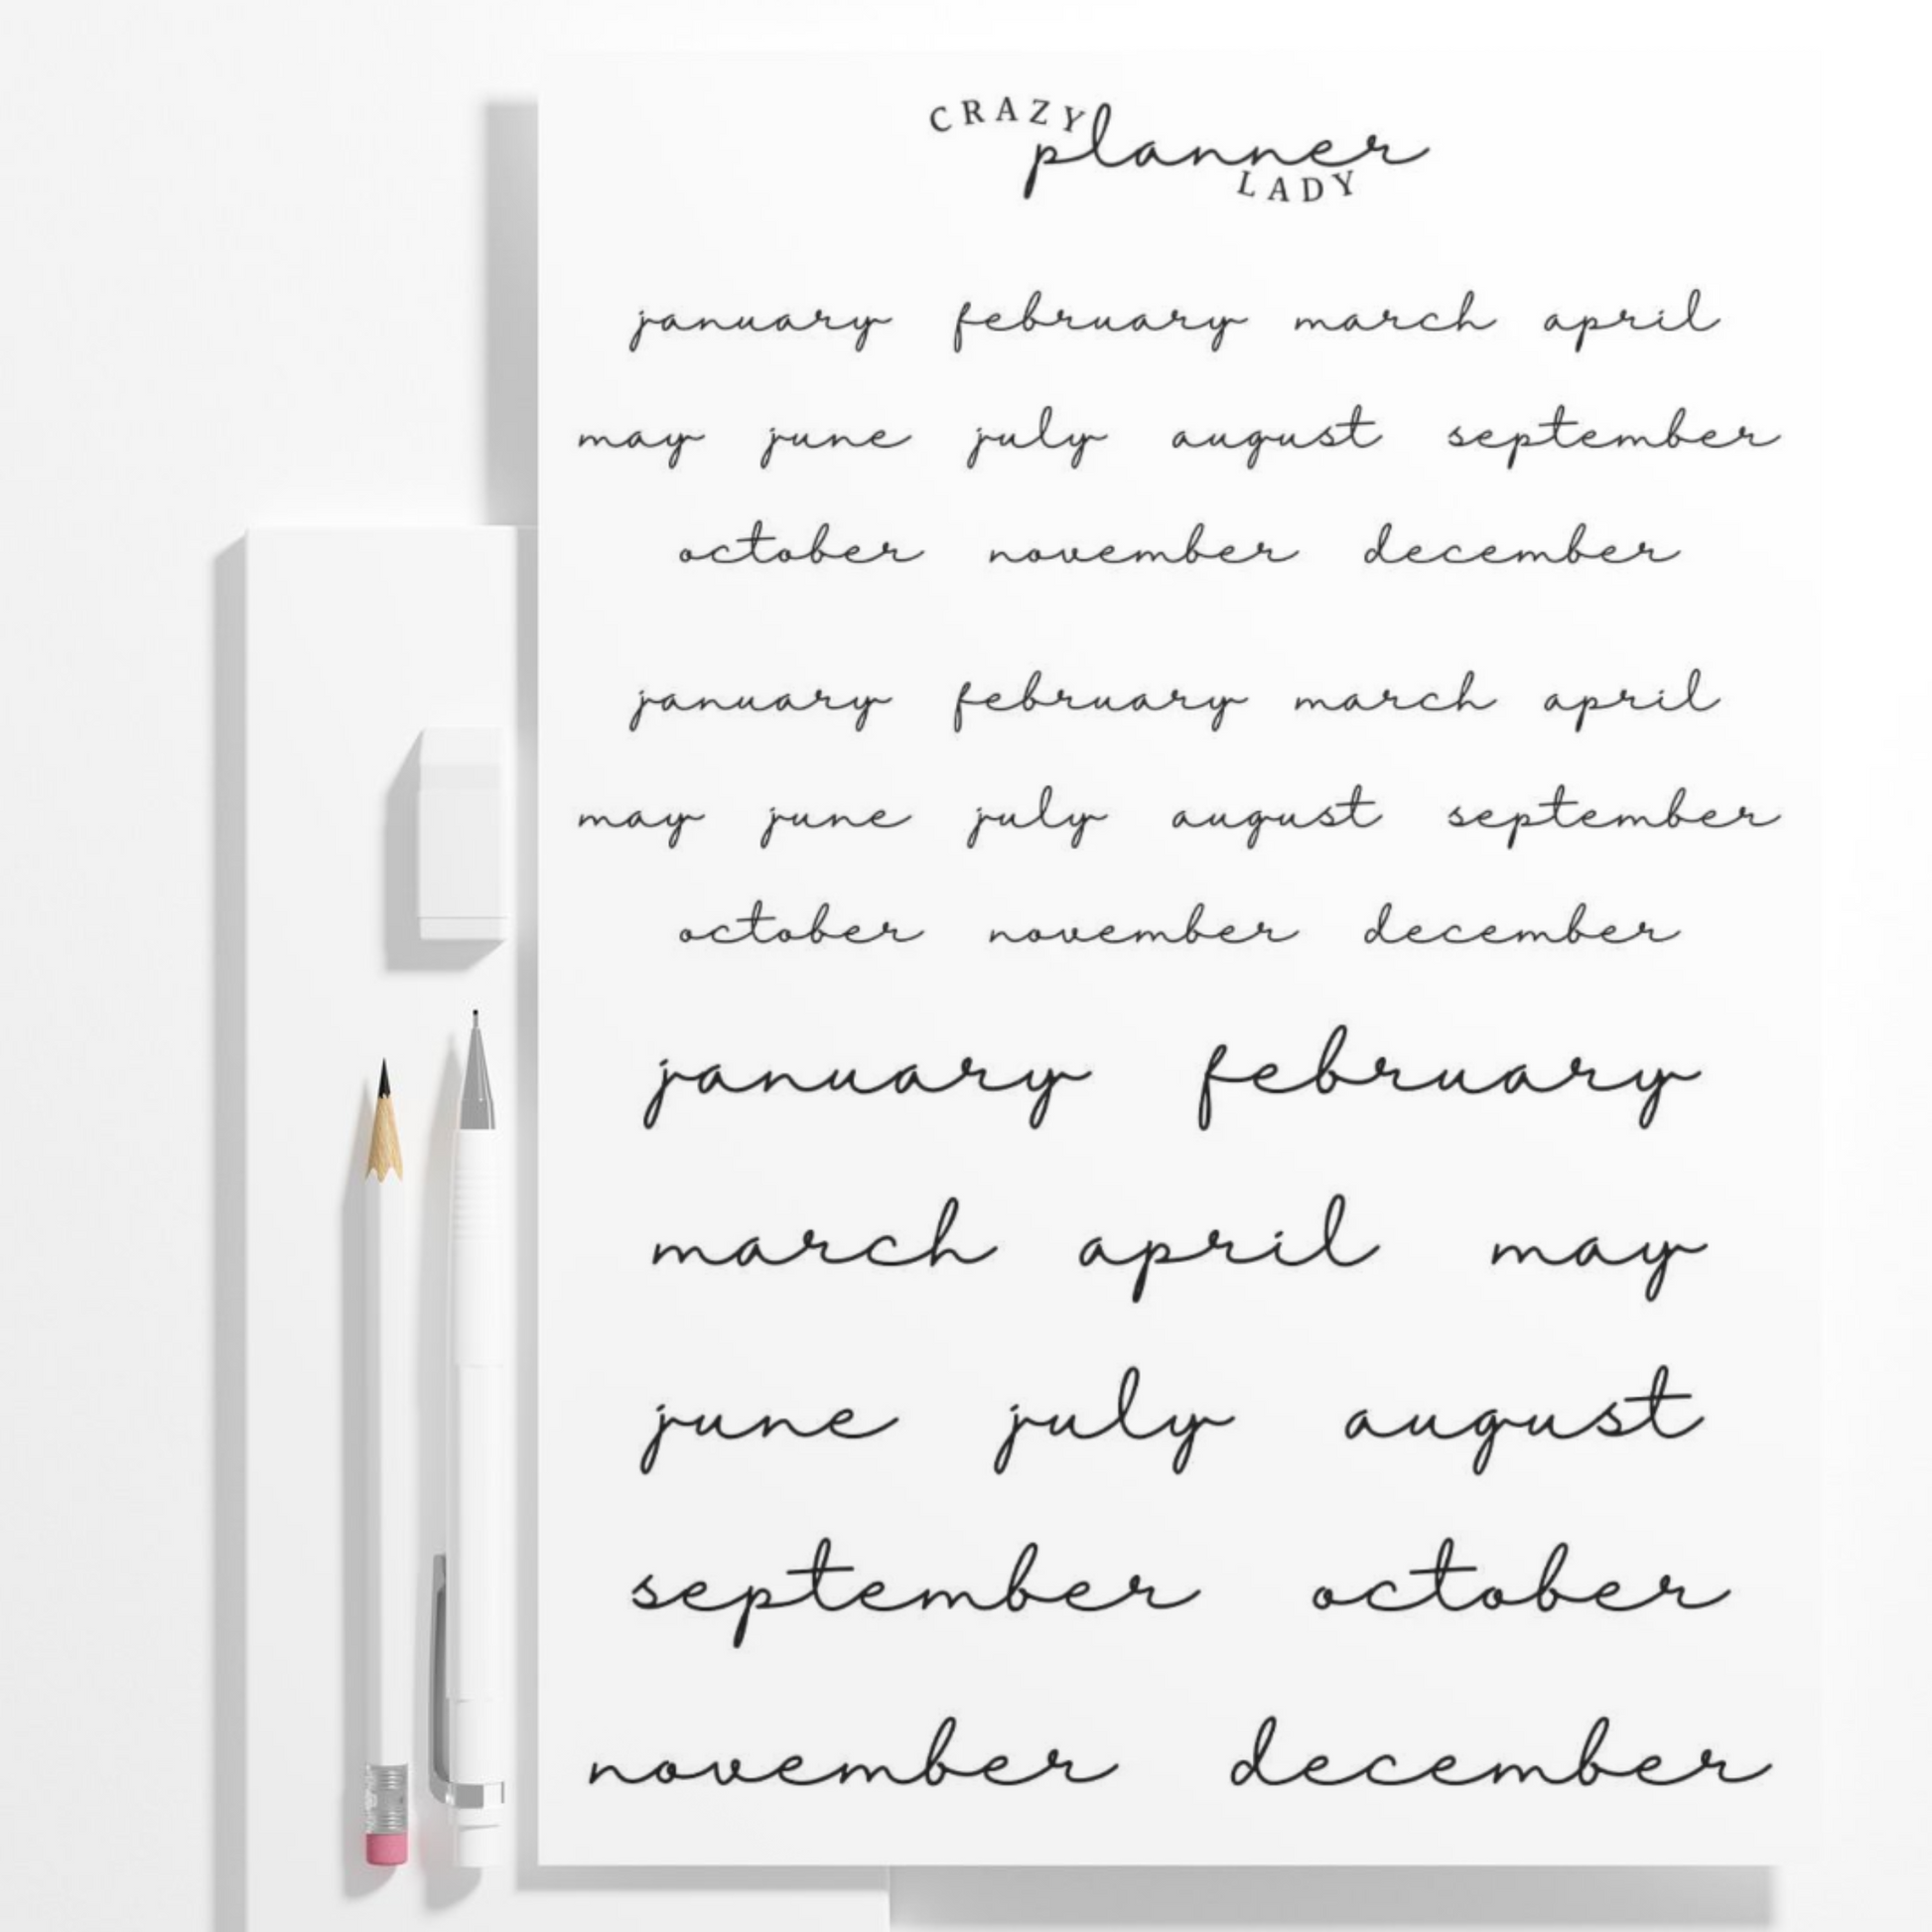 CRAZY
planner
LADY
january february march april
may june july august september
october november december
january february march april
may june july august september
october november december
january february
march april may
june july august
september october
november december